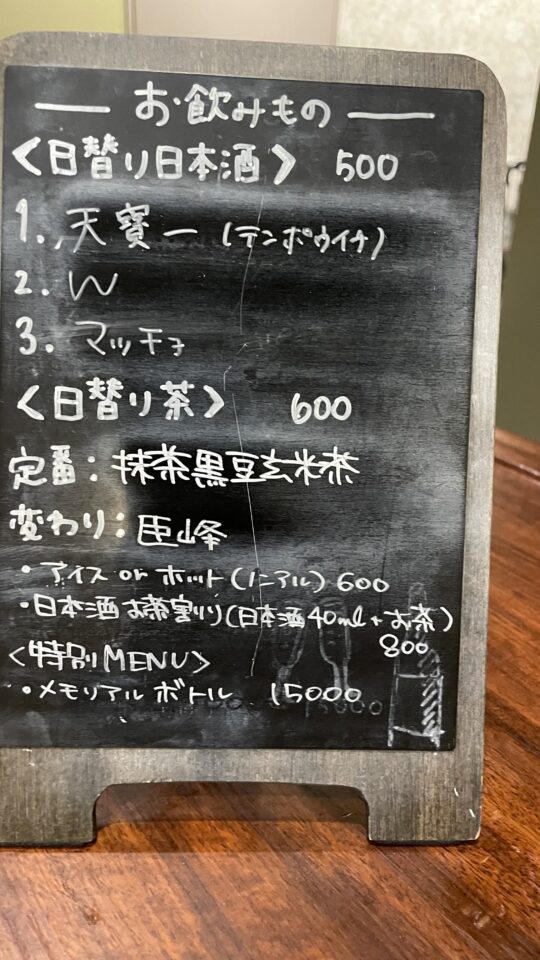 お飲みもの
<日替り日本酒> 500
1. 天寶一 (テンポウイチ)
2. W
3. マッチョ
<日替り茶> 600
定番:抹茶黒豆玄米茶
変わり:巨峰
・アイス or ホット(ノンアル) 600
・日本酒お茶割り(日本酒40ml+お茶)
800
<特別MENU>
・メモリアルボトル 15000